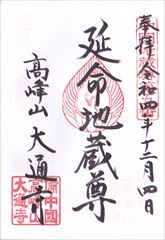 奉拝
令和四年十二月四日
延命地蔵尊
高峰山大通寺
備中國
大通寺